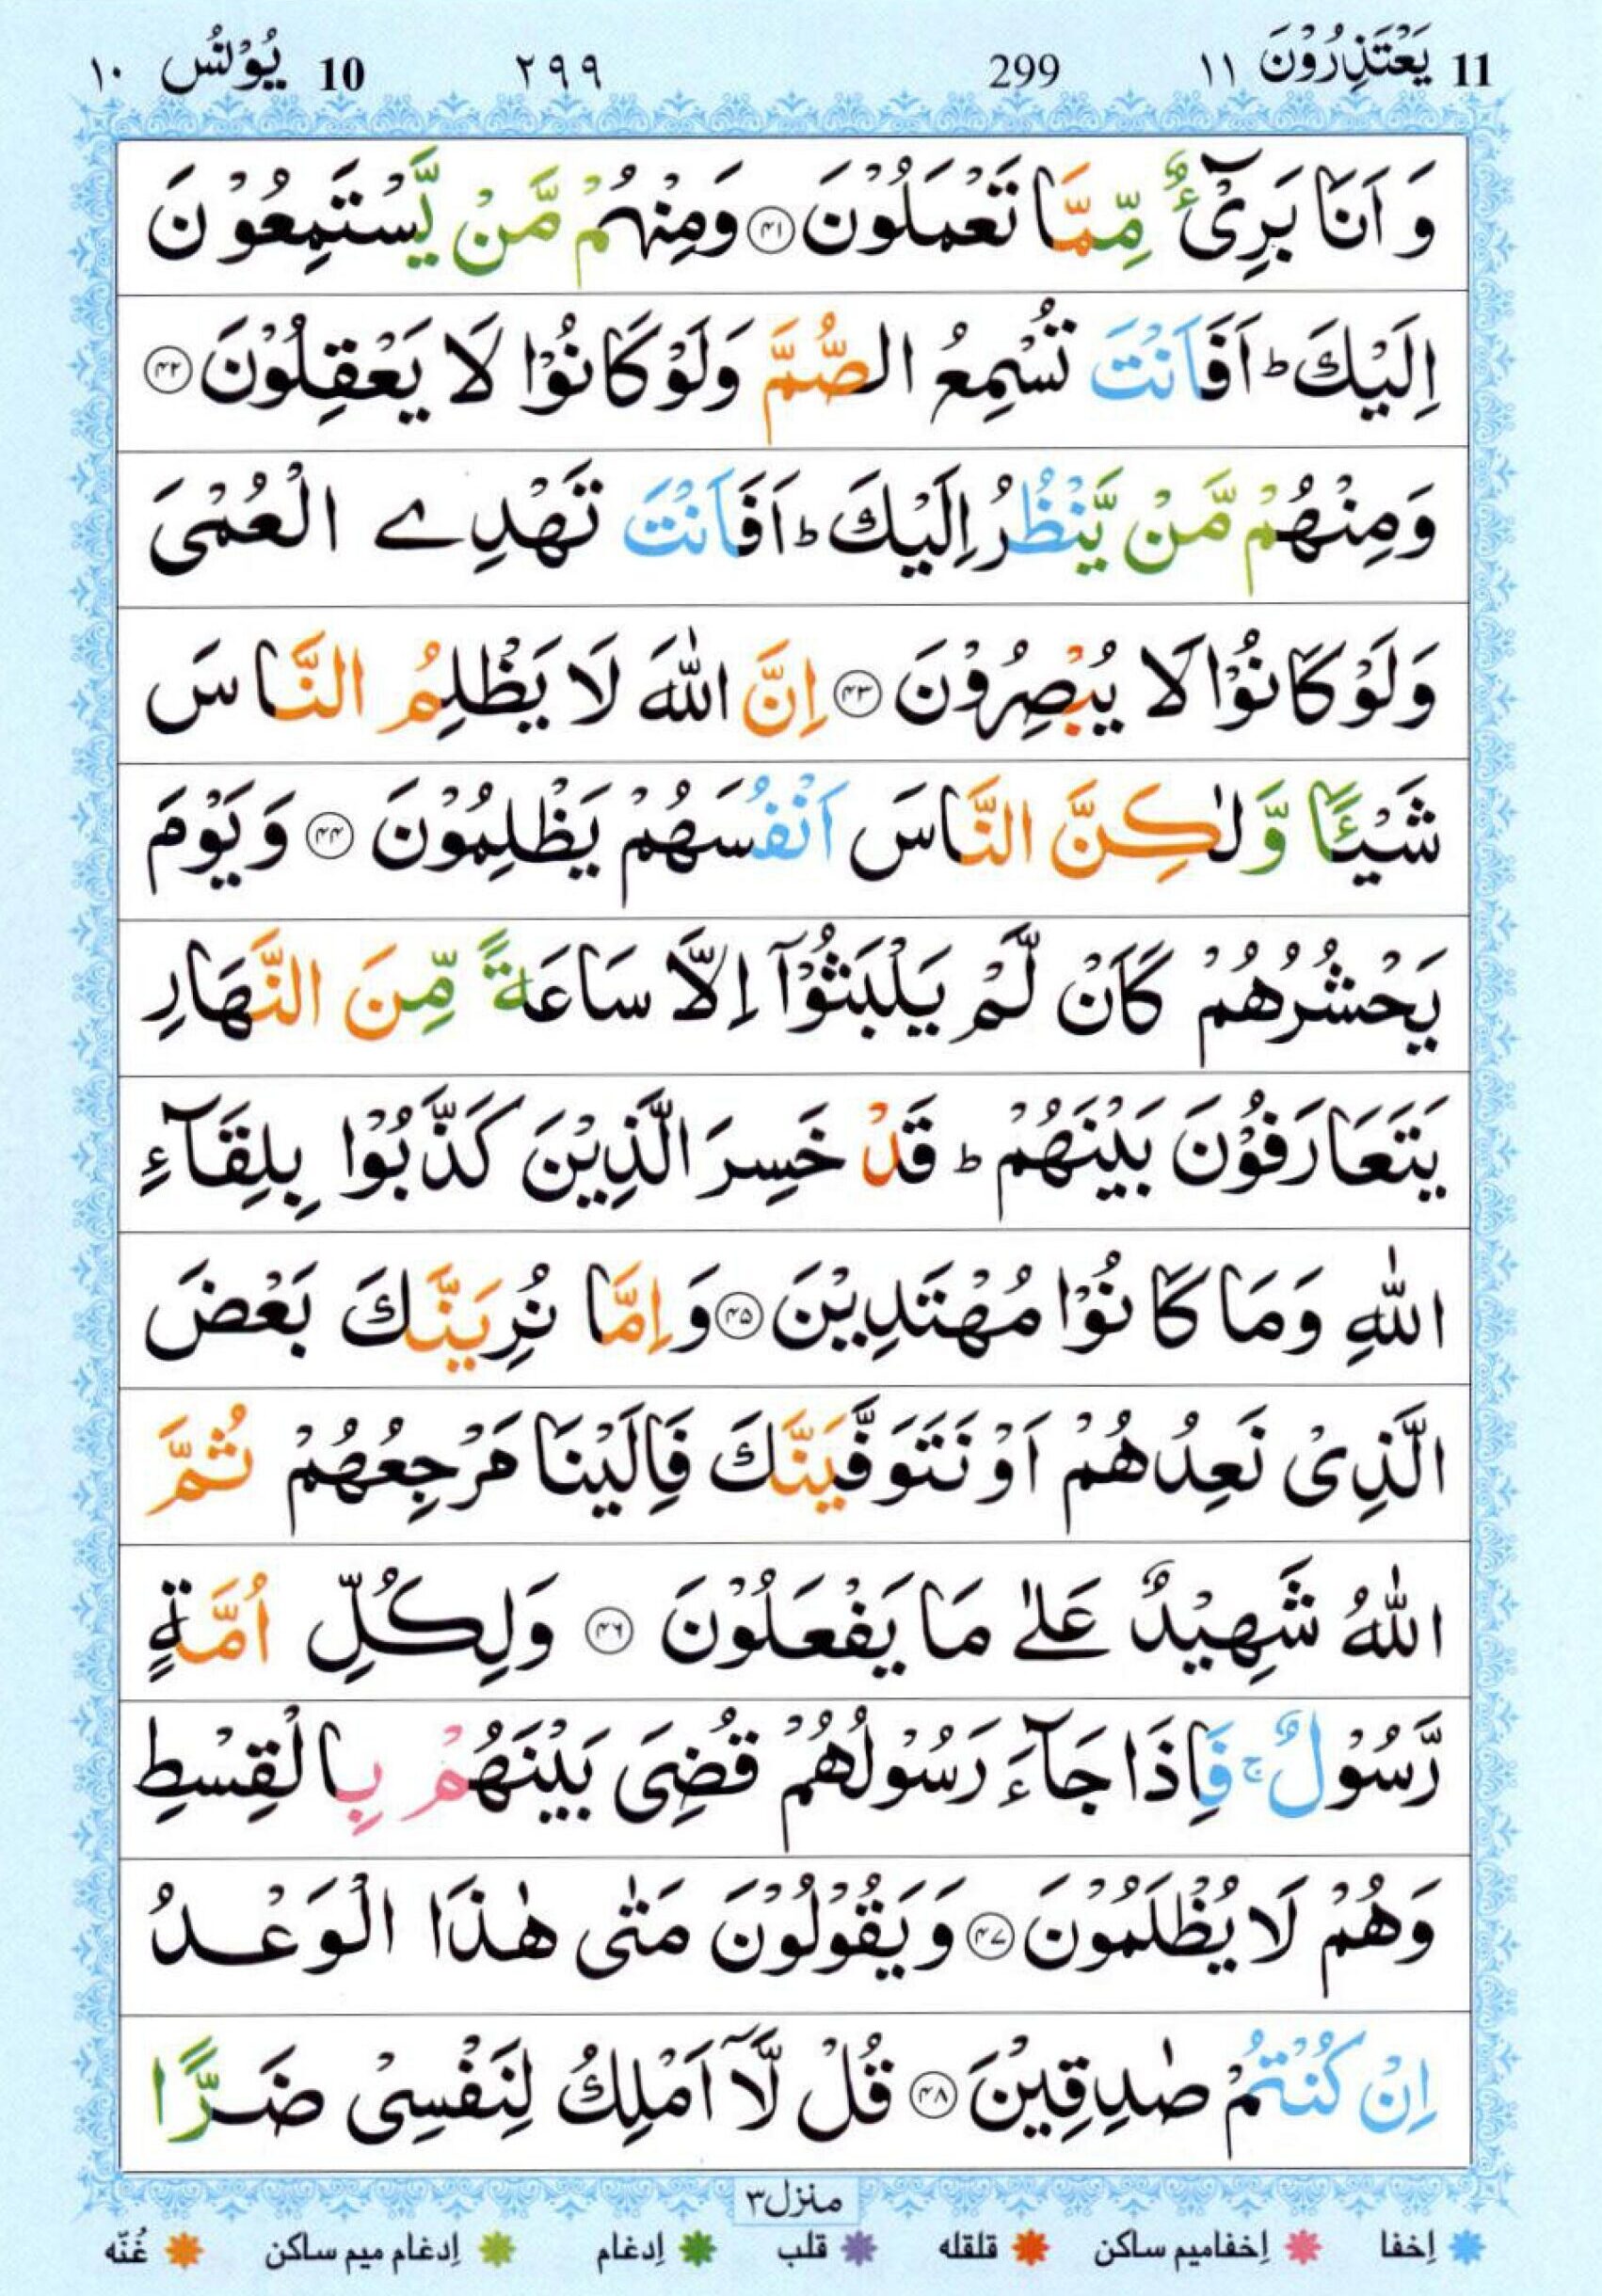 11 یَعْتَذِرُوْنَ ۱۱ 299 ۲۹۹ 10 یُوْنُس ۱۰
وَ اَنَا بَرِیْٓءٌ مِّمَّا تَعْمَلُوْنَ ﴿۴۱﴾ وَمِنْهُمْ مَّنْ یَّسْتَمِعُوْنَ
اِلَیْكَ ؕ اَفَاَنْتَ تُسْمِعُ الصُّمَّ وَلَوْ كَانُوْا لَا یَعْقِلُوْنَ ﴿۴۲﴾
وَمِنْهُمْ مَّنْ یَّنْظُرُ اِلَیْكَ ؕ اَفَاَنْتَ تَهْدِے الْعُمْیَ
وَلَوْ كَانُوْا لَا یُبْصِرُوْنَ ﴿۴۳﴾ اِنَّ اللّٰهَ لَا یَظْلِمُ النَّاسَ
شَیْـًٔا وَّ لٰكِنَّ النَّاسَ اَنْفُسَهُمْ یَظْلِمُوْنَ ﴿۴۴﴾ وَ یَوْمَ
یَحْشُرُهُمْ كَاَنْ لَّمْ یَلْبَثُوْۤا اِلَّا سَاعَةً مِّنَ النَّهَارِ
یَتَعَارَفُوْنَ بَیْنَهُمْ ؕ قَدْ خَسِرَ الَّذِیْنَ كَذَّبُوْا بِلِقَآءِ
اللّٰهِ وَمَا كَانُوْا مُهْتَدِیْنَ ﴿۴۵﴾ وَ اِمَّا نُرِیَنَّكَ بَعْضَ
الَّذِیْ نَعِدُهُمْ اَوْ نَتَوَفَّیَنَّكَ فَاِلَیْنَا مَرْجِعُهُمْ ثُمَّ
اللّٰهُ شَهِیْدٌ عَلٰی مَا یَفْعَلُوْنَ ﴿۴۶﴾ وَلِكُلِّ اُمَّةٍ
رَّسُوْلٌ ۚ فَاِذَا جَآءَ رَسُوْلُهُمْ قُضِیَ بَیْنَهُمْ بِالْقِسْطِ
وَهُمْ لَا یُظْلَمُوْنَ ﴿۴۷﴾ وَ یَقُوْلُوْنَ مَتٰی هٰذَا الْوَعْدُ
اِنْ كُنْتُمْ صٰدِقِیْنَ ﴿۴۸﴾ قُلْ لَّاۤ اَمْلِكُ لِنَفْسِیْ ضَرًّا
منزل ۳
إخفا إخفاميم ساكن قلقله قلب إدغام إدغام ميم ساكن غُنّه